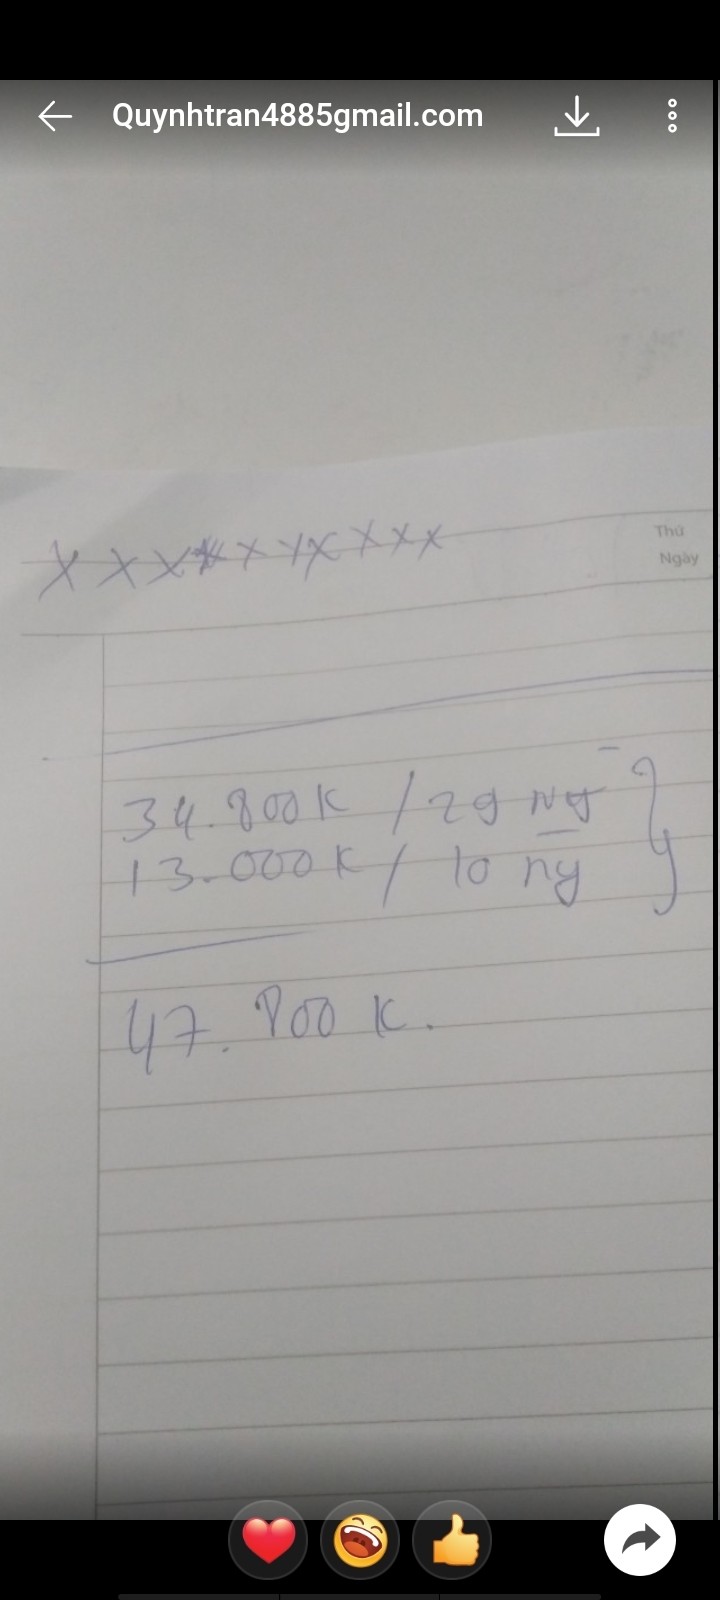 Quynhtran4885gmail.com
X X X X X X X X X X X
Thứ
Ngày
34.800K / 29 ng
13.000K / 10 ng
47.800 K.